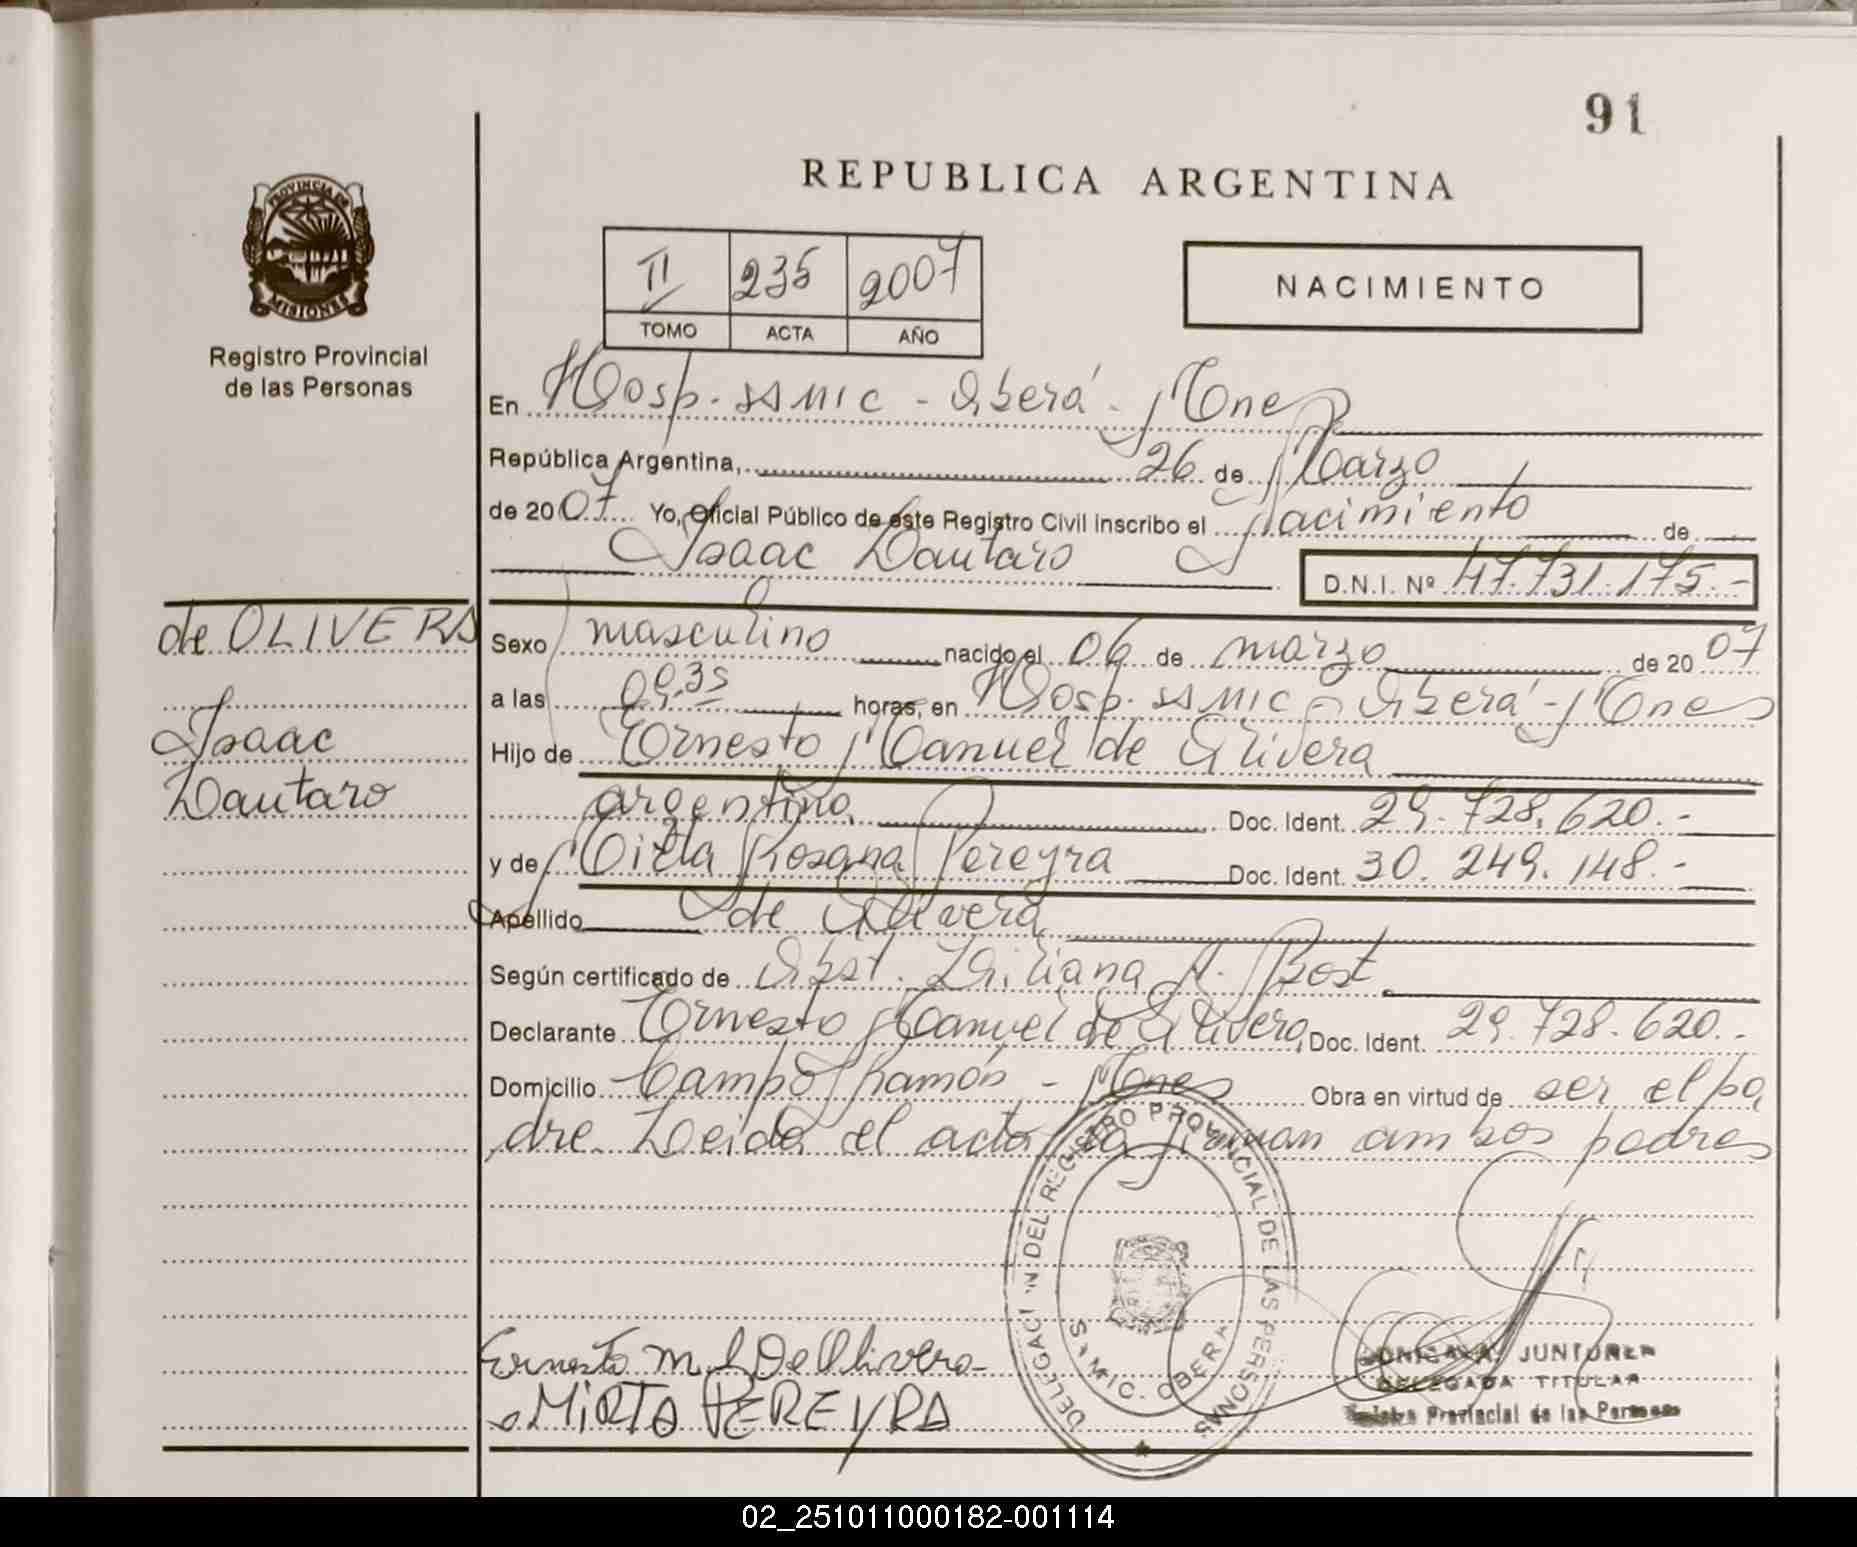 91
REPUBLICA ARGENTINA
PROVINCIA DE
MISIONES
Registro Provincial
de las Personas
II 235 2007
TOMO ACTA AÑO
NACIMIENTO
En Hosp. SAMIC - Oberá - Mnes
República Argentina, 26 de Marzo
de 2007 Yo, Oficial Público de este Registro Civil inscribo el nacimiento de
Isaac Lautaro
D.N.I. Nº 47.731.175.-
de OLIVERA
Isaac
Lautaro
Sexo masculino nacido el 06 de marzo de 2007
a las 09,35 horas, en Hosp. SAMIC - Oberá - Mnes
Hijo de Ernesto Manuel de Olivera
argentino, Doc. Ident. 29.728.620.-
y de Mirta Rosana Pereyra Doc. Ident. 30.249.148.-
Apellido de Olivera
Según certificado de Obst. Liliana A. Bost
Declarante Ernesto Manuel de Olivera Doc. Ident. 29.728.620.-
Domicilio Campo Ramón - Mnes Obra en virtud de ser el pa
dre. Leida el acta la firman ambos padres
DELEGACI N DEL REGISTRO PROVINCIAL DE LAS PERSONAS
SAMIC. OBERA
Ernesto M. De Olivera
MIRTA PEREYRA
DELEGADA TITULAR
Registro Provincial de las Personas
02_251011000182-001114